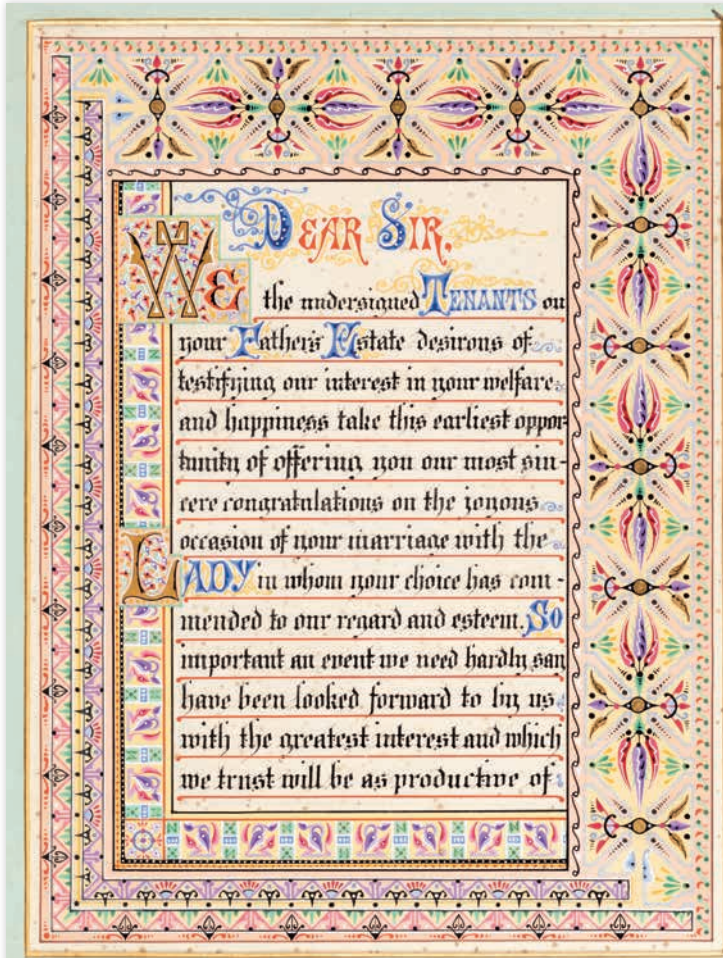 DEAR SIR.
WE the undersigned TENANTS on
your Father's Estate desirous of
testifying our interest in your welfare
and happiness take this earliest oppor-
tunity of offering you our most sin-
cere congratulations on the joyous
occasion of your marriage with the
LADY in whom your choice has com-
mended to our regard and esteem. So
important an event we need hardly say
have been looked forward to by us
with the greatest interest and which
we trust will be as productive of